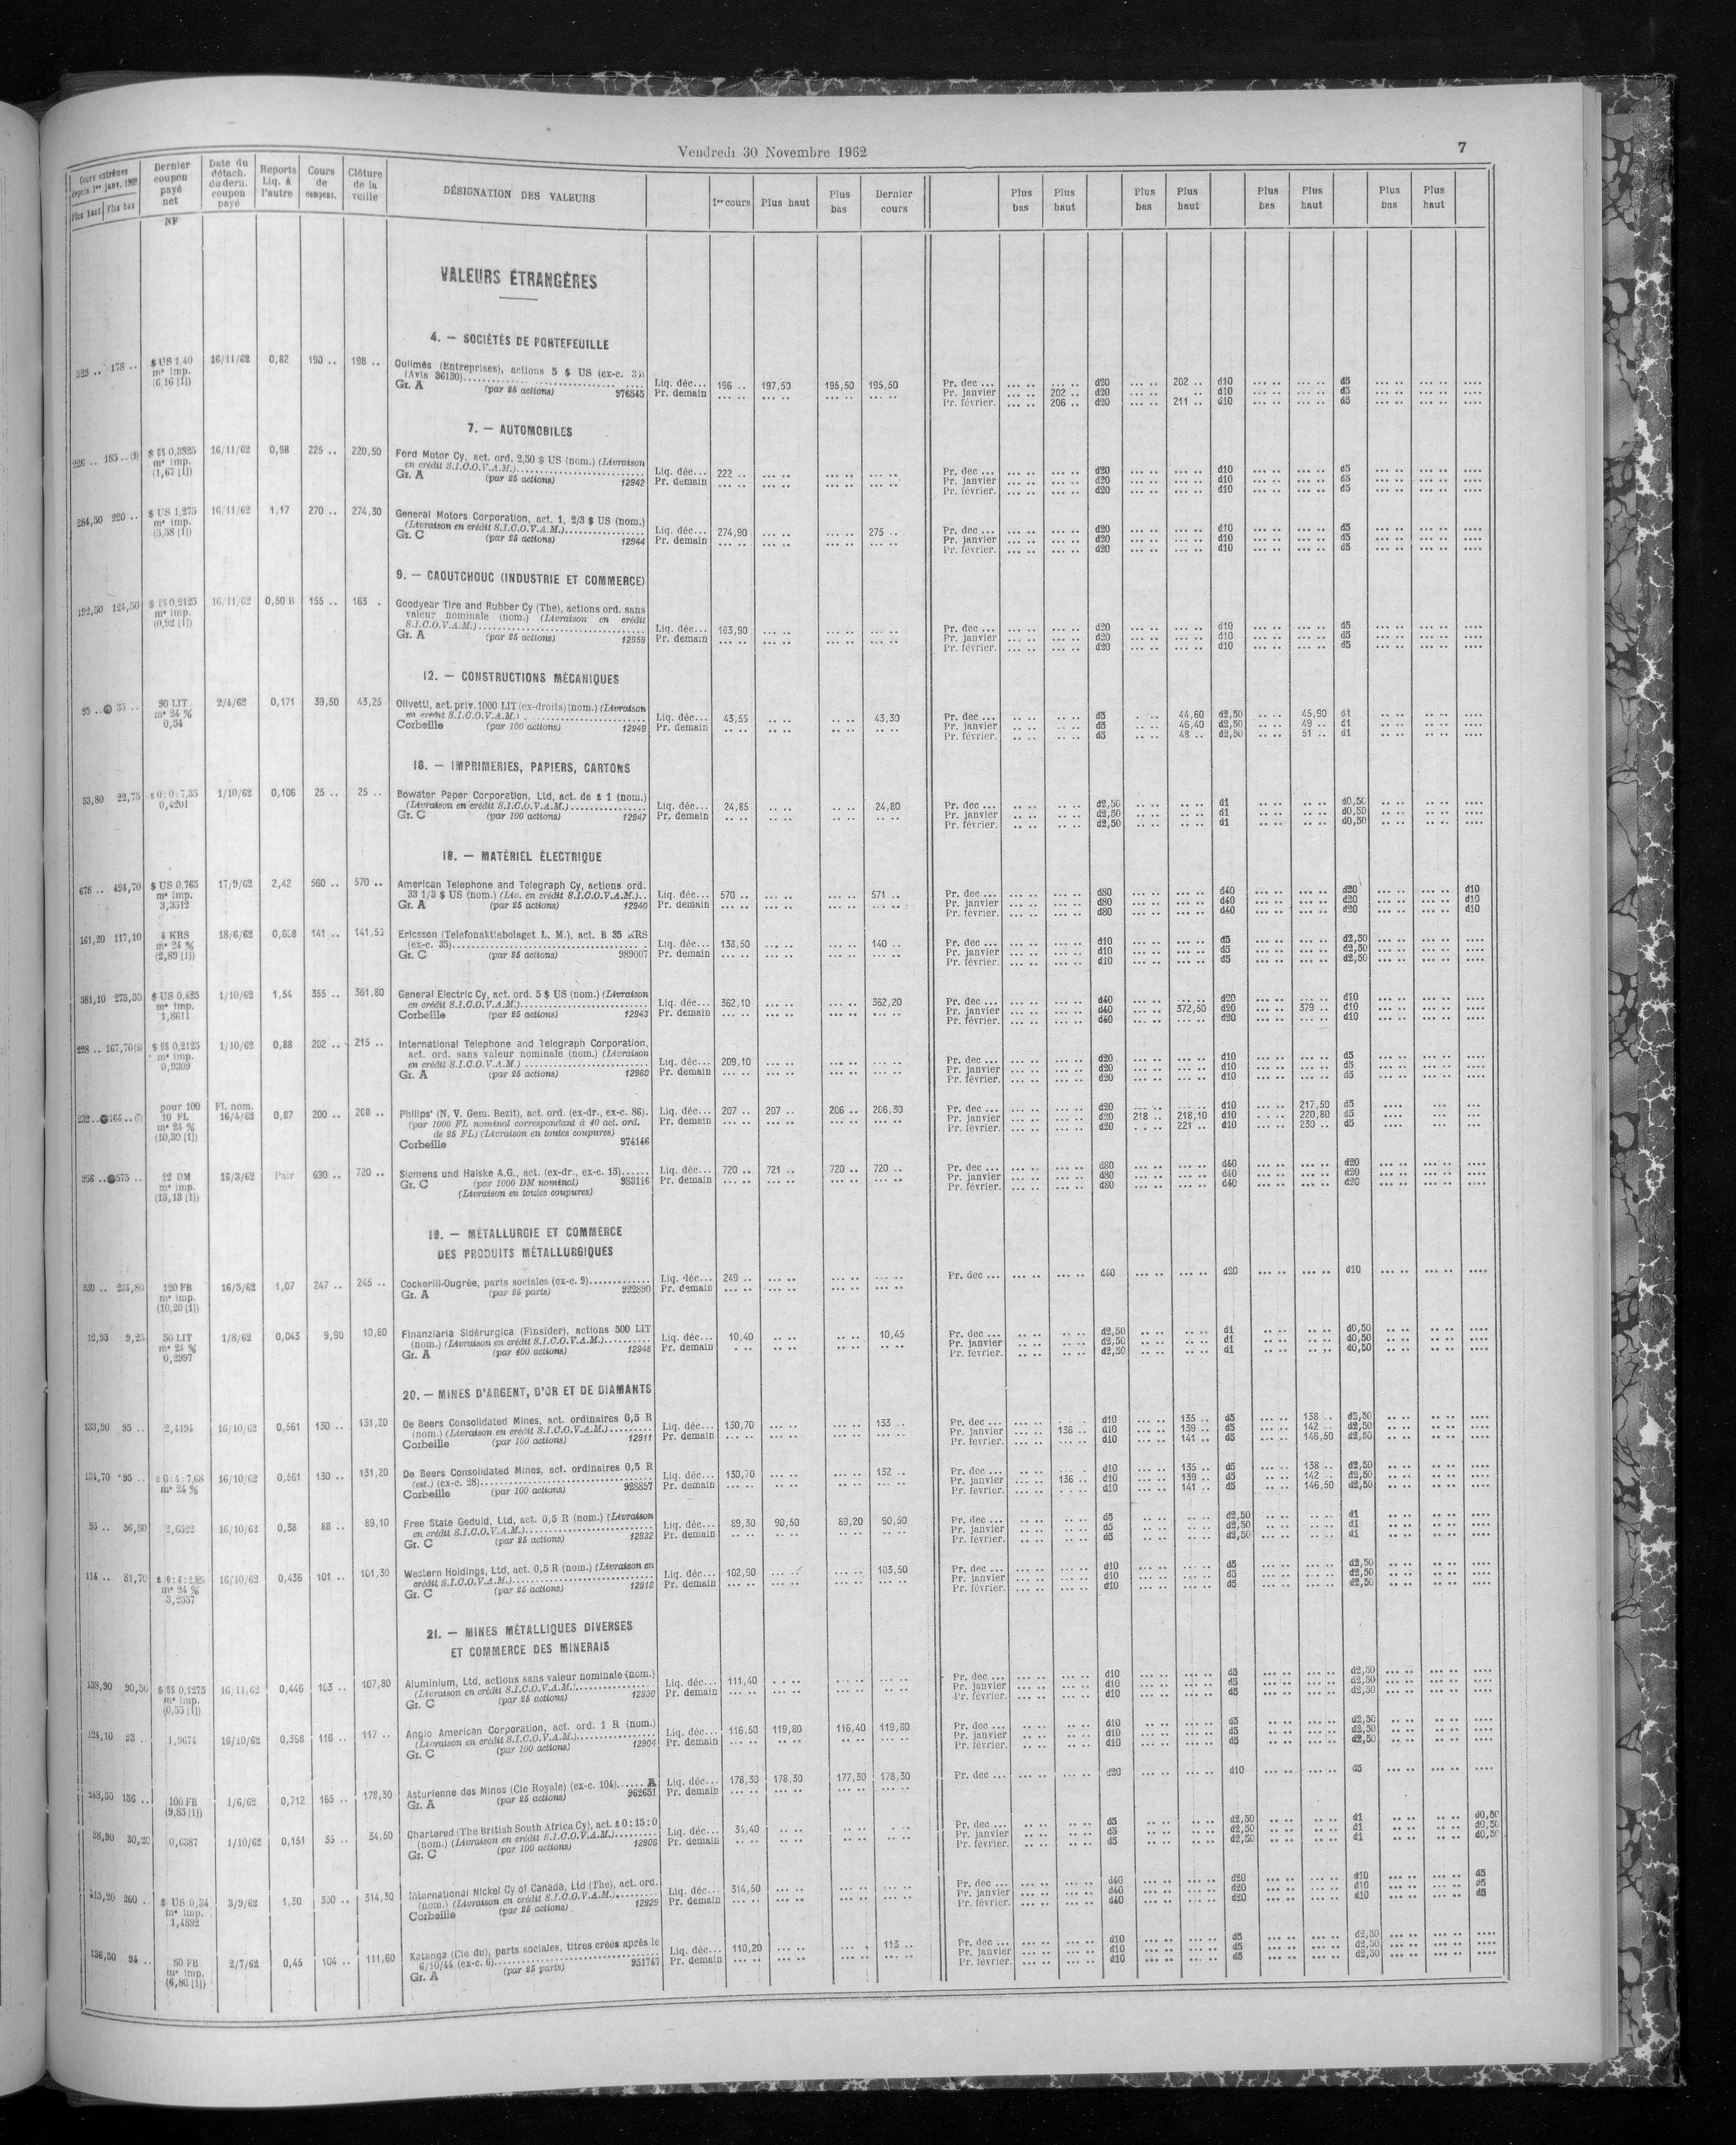 Vendredi 30 Novembre 1962
7
Cours extrêmes depuis 1er janv. 1962
Plus haut Plus bas
Dernier coupon payé net
NF
Date du détach. du dern. coupon payé
Reports Liq. à l'autre
Cours de compens.
Clôture de la veille
DÉSIGNATION DES VALEURS
1er cours Plus haut Plus bas Dernier cours
Plus bas Plus haut Plus bas Plus haut Plus bas Plus haut Plus bas Plus haut
VALEURS ÉTRANGÈRES
4. — SOCIÉTÉS DE PORTEFEUILLE
325 .. 178 .. $ US 1,40 16/11/62 0,82 190 .. 198 ..
m° imp.
(6,16 [1])
Quilmès (Entreprises), actions 5 $ US (ex-c. 35)
(Avis 36130)
Gr. A (par 25 actions) 976545
Liq. déc... 196 .. 197,50 195,50 195,50
Pr. demain
Pr. dec ... d20 202 .. d10 d5
Pr. janvier 202 .. d20 d10 d5
Pr. février. 206 .. d20 211 .. d10 d5
7. — AUTOMOBILES
226 .. 185 .. $ US 0,3825 16/11/62 0,98 225 .. 220,50
m° imp.
(1,67 [1])
Ford Motor Cy, act. ord. 2,50 $ US (nom.) (Livraison
en crédit S.I.C.O.V.A.M.)
Gr. A (par 25 actions) 12942
Liq. déc... 222 ..
Pr. demain
Pr. dec ... d20 d10 d5
Pr. janvier d20 d10 d5
Pr. février. d20 d10 d5
284,50 220 .. $ US 1,275 16/11/62 1,17 270 .. 274,30
m° imp.
(5,58 [1])
General Motors Corporation, act. 1, 2/3 $ US (nom.)
(Livraison en crédit S.I.C.O.V.A.M.)
Gr. C (par 25 actions) 12944
Liq. déc... 274,90 275 ..
Pr. demain
Pr. dec ... d20 d10 d5
Pr. janvier d20 d10 d5
Pr. février. d20 d10 d5
9. — CAOUTCHOUC (INDUSTRIE ET COMMERCE)
192,50 124,50 $ US 0,2125 16/11/62 0,50 B 155 .. 163 .
m° imp.
(0,92 [1])
Goodyear Tire and Rubber Cy (The), actions ord. sans
valeur nominale (nom.) (Livraison en crédit
S.I.C.O.V.A.M.)
Gr. A (par 25 actions) 12959
Liq. déc... 163,90
Pr. demain
Pr. dec ... d20 d10 d5
Pr. janvier d20 d10 d5
Pr. février. d20 d10 d5
12. — CONSTRUCTIONS MÉCANIQUES
95 .. 35 .. 90 LIT 2/4/62 0,171 39,50 43,25
m° 24 %
0,54
Olivetti, act. priv. 1000 LIT (ex-droits) (nom.) (Livraison
en crédit S.I.C.O.V.A.M.)
Corbeille (par 100 actions) 12949
Liq. déc... 43,55 43,30
Pr. demain
Pr. dec ... d5 44,60 d2,50 45,90 d1
Pr. janvier d5 46,40 d2,50 49 .. d1
Pr. février. d5 48 .. d2,50 51 .. d1
18. — IMPRIMERIES, PAPIERS, CARTONS
33,80 22,75 £ 0:0:7,35 1/10/62 0,106 25 .. 25 ..
0,4201
Bowater Paper Corporation, Ltd, act. de £ 1 (nom.)
(Livraison en crédit S.I.C.O.V.A.M.)
Gr. C (par 100 actions) 12947
Liq. déc... 24,85 24,80
Pr. demain
Pr. dec ... d2,50 d1 d0,50
Pr. janvier d2,50 d1 d0,50
Pr. février. d2,50 d1 d0,50
18. — MATÉRIEL ÉLECTRIQUE
678 .. 494,70 $ US 0,765 17/9/62 2,42 560 .. 570 ..
m° imp.
3,3512
American Telephone and Telegraph Cy, actions ord.
33 1/3 $ US (nom.) (Liv. en crédit S.I.C.O.V.A.M.)..
Gr. A (par 25 actions) 12940
Liq. déc... 570 .. 571 ..
Pr. demain
Pr. dec ... d80 d40 d20 d10
Pr. janvier d80 d40 d20 d10
Pr. février. d80 d40 d20 d10
161,20 117,10 4 KRS 18/6/62 0,608 141 .. 141,50
m° 24 %
(2,89 [1])
Ericsson (Telefonaktiebolaget L. M.), act. B 35 KRS
(ex-c. 35)
Gr. C (par 25 actions) 989007
Liq. déc... 138,50 140 ..
Pr. demain
Pr. dec ... d10 d5 d2,50
Pr. janvier d10 d5 d2,50
Pr. février. d10 d5 d2,50
381,10 275,50 $ US 0,425 1/10/62 1,54 355 .. 361,80
m° imp.
1,8611
General Electric Cy, act. ord. 5 $ US (nom.) (Livraison
en crédit S.I.C.O.V.A.M.)
Corbeille (par 25 actions) 12943
Liq. déc... 362,10 362,20
Pr. demain
Pr. dec ... d40 d20 d10
Pr. janvier d40 372,50 d20 379 .. d10
Pr. février. d40 d20 d10
228 .. 167,70 $ US 0,2125 1/10/62 0,88 202 .. 215 ..
m° imp.
0,9309
International Telephone and Telegraph Corporation,
act. ord. sans valeur nominale (nom.) (Livraison
en crédit S.I.C.O.V.A.M.)
Gr. A (par 25 actions) 12960
Liq. déc... 209,10
Pr. demain
Pr. dec ... d20 d10 d5
Pr. janvier d20 d10 d5
Pr. février. d20 d10 d5
232 .. 164 .. (7) pour 100 FL nom. 0,87 200 .. 208 ..
10 FL 16/4/62
m° 24 %
(10,30 [1])
Philips' (N. V. Gem. Bezit), act. ord. (ex-dr., ex-c. 86).
(par 1000 FL nominal correspondant à 40 act. ord.
de 25 FL) (Livraison en toutes coupures)
Corbeille 974146
Liq. déc... 207 .. 207 .. 206 .. 206,30
Pr. demain
Pr. dec ... d20 d10 217,50 d5
Pr. janvier d20 218 .. 218,10 d10 220,80 d5
Pr. février. d20 221 .. d10 230 .. d5
956 .. 575 .. 12 DM 16/3/62 Pair 690 .. 720 ..
m° imp.
(13,13 [1])
Siemens und Halske A.G., act. (ex-dr., ex-c. 15)
Gr. C (par 1000 DM nominal) 983116
(Livraison en toutes coupures)
Liq. déc... 720 .. 721 .. 720 .. 720 ..
Pr. demain
Pr. dec ... d80 d40 d20
Pr. janvier d80 d40 d20
Pr. février. d80 d40 d20
19. — MÉTALLURGIE ET COMMERCE
DES PRODUITS MÉTALLURGIQUES
330 .. 234,80 120 FB 16/5/62 1,07 247 .. 245 ..
m° imp.
(10,20 [1])
Cockerill-Ougrée, parts sociales (ex-c. 9)
Gr. A (par 25 parts) 922890
Liq. déc... 249 ..
Pr. demain
Pr. dec ... d40 d20 d10
12,95 9,25 50 LIT 1/8/62 0,043 9,90 10,60
m° 24 %
0,2997
Finanziaria Sidérurgica (Finsider), actions 500 LIT
(nom.) (Livraison en crédit S.I.C.O.V.A.M.)
Gr. A (par 400 actions) 12948
Liq. déc... 10,40 10,45
Pr. demain
Pr. dec ... d2,50 d1 d0,50
Pr. janvier d2,50 d1 d0,50
Pr. février. d2,50 d1 d0,50
20. — MINES D'ARGENT, D'OR ET DE DIAMANTS
133,90 95 .. 2,4194 16/10/62 0,561 130 .. 131,20
De Beers Consolidated Mines, act. ordinaires 0,5 R
(nom.) (Livraison en crédit S.I.C.O.V.A.M.)
Corbeille (par 100 actions) 12911
Liq. déc... 130,70 133 ..
Pr. demain
Pr. dec ... d10 135 .. d5 138 .. d2,50
Pr. janvier 136 .. d10 139 .. d5 142 .. d2,50
Pr. février. d10 141 .. d5 146,50 d2,50
134,70 95 .. £ 0:4:7,68 16/10/62 0,561 130 .. 131,20
m° 24 %
De Beers Consolidated Mines, act. ordinaires 0,5 R
(est.) (ex-c. 28)
Corbeille (par 100 actions) 928897
Liq. déc... 130,70 132 ..
Pr. demain
Pr. dec ... d10 135 .. d5 138 .. d2,50
Pr. janvier 136 .. d10 139 .. d5 142 .. d2,50
Pr. février. d10 141 .. d5 146,50 d2,50
95 .. 56,80 2,6522 16/10/62 0,38 88 .. 89,10
Free State Geduld, Ltd, act. 0,5 R (nom.) (Livraison
en crédit S.I.C.O.V.A.M.)
Gr. C (par 25 actions) 12932
Liq. déc... 89,30 90,50 89,20 90,50
Pr. demain
Pr. dec ... d5 d2,50 d1
Pr. janvier d5 d2,50 d1
Pr. février. d5 d2,50 d1
114 .. 81,70 16/10/62 0,436 101 .. 101,30
m° 24 %
3,2557
Western Holdings, Ltd, act. 0,5 R (nom.) (Livraison en
crédit S.I.C.O.V.A.M.)
Gr. C (par 25 actions) 12918
Liq. déc... 102,90 103,50
Pr. demain
Pr. dec ... d10 d5 d2,50
Pr. janvier d10 d5 d2,50
Pr. février. d10 d5 d2,50
21. — MINES MÉTALLIQUES DIVERSES
ET COMMERCE DES MINERAIS
138,90 90,50 $ US 0,1275 16/11/62 0,446 103 .. 107,80
m° imp.
(0,55 [1])
Aluminium, Ltd, actions sans valeur nominale (nom.)
(Livraison en crédit S.I.C.O.V.A.M.)
Gr. C (par 25 actions) 12930
Liq. déc... 111,40
Pr. demain
Pr. dec ... d10 d5 d2,50
Pr. janvier d10 d5 d2,50
Pr. février. d10 d5 d2,50
124,10 93 .. 1,9674 16/10/62 0,358 116 .. 117 ..
Anglo American Corporation, act. ord. 1 R (nom.)
(Livraison en crédit S.I.C.O.V.A.M.)
Gr. C (par 100 actions) 12904
Liq. déc... 116,50 119,80 116,40 119,80
Pr. demain
Pr. dec ... d10 d5 d2,50
Pr. janvier d10 d5 d2,50
Pr. février. d10 d5 d2,50
248,50 156 .. 100 FB 1/6/62 0,712 165 .. 178,30
(9,85 [1])
Asturienne des Mines (Cie Royale) (ex-c. 104)...... A
Gr. A (par 25 actions) 962651
Liq. déc... 178,30 178,30 177,30 178,30
Pr. demain
Pr. dec ... d20 d10 d5
38,90 30,20 0,6387 1/10/62 0,151 35 .. 34,50
Chartered (The British South Africa Cy), act. £ 0:15:0
(nom.) (Livraison en crédit S.I.C.O.V.A.M.)
Gr. C (par 100 actions) 12906
Liq. déc... 34,40
Pr. demain
Pr. dec ... d5 d2,50 d1 d0,50
Pr. janvier d5 d2,50 d1 d0,50
Pr. février. d5 d2,50 d1 d0,50
413,20 260 .. $ US 0,34 3/9/62 1,30 300 .. 314,30
m° imp.
1,4892
International Nickel Cy of Canada, Ltd (The), act. ord.
(nom.) (Livraison en crédit S.I.C.O.V.A.M.)
Corbeille (par 25 actions) 12929
Liq. déc... 314,50
Pr. demain
Pr. dec ... d40 d20 d10 d5
Pr. janvier d40 d20 d10 d5
Pr. février. d40 d20 d10 d5
136,50 94 .. 80 FB 2/7/62 0,45 104 .. 111,60
m° imp.
(6,80 [1])
Katanga (Cie du), parts sociales, titres créés après le
6/10/44 (ex-c. 6)
Gr. A (par 25 parts) 951747
Liq. déc... 110,20 113 ..
Pr. demain
Pr. dec ... d10 d5 d2,50
Pr. janvier d10 d5 d2,50
Pr. février. d10 d5 d2,50